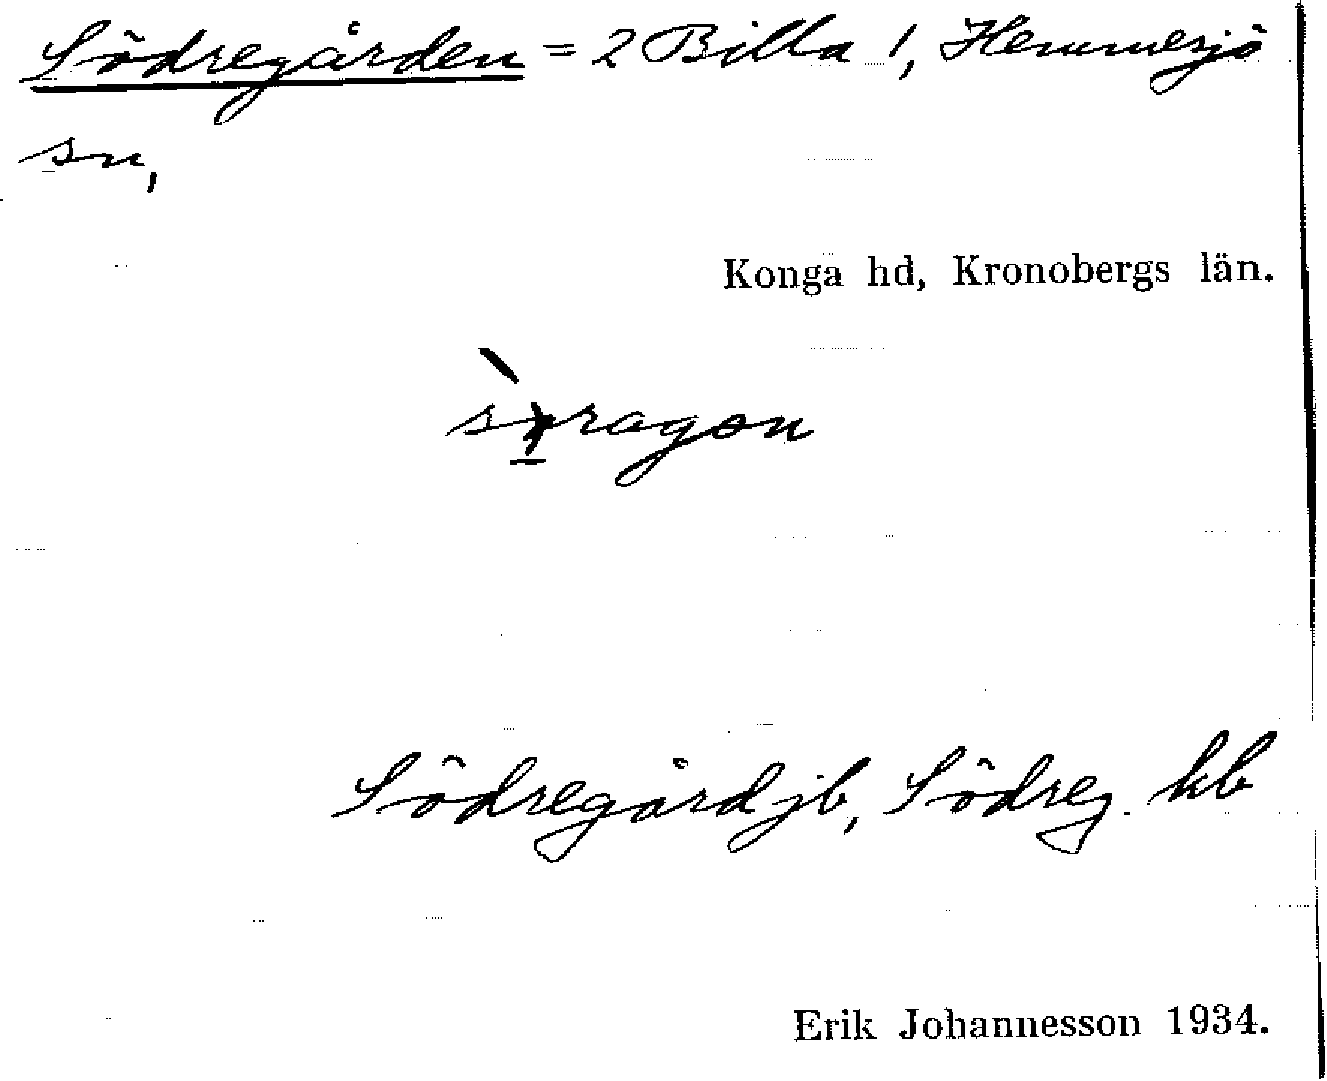 Södregården = 2 Billa 1, Hemmesjö
sn,
Konga hd, Kronobergs län.
Södregård jb, Södreg. hb
Erik Johannesson 1934.